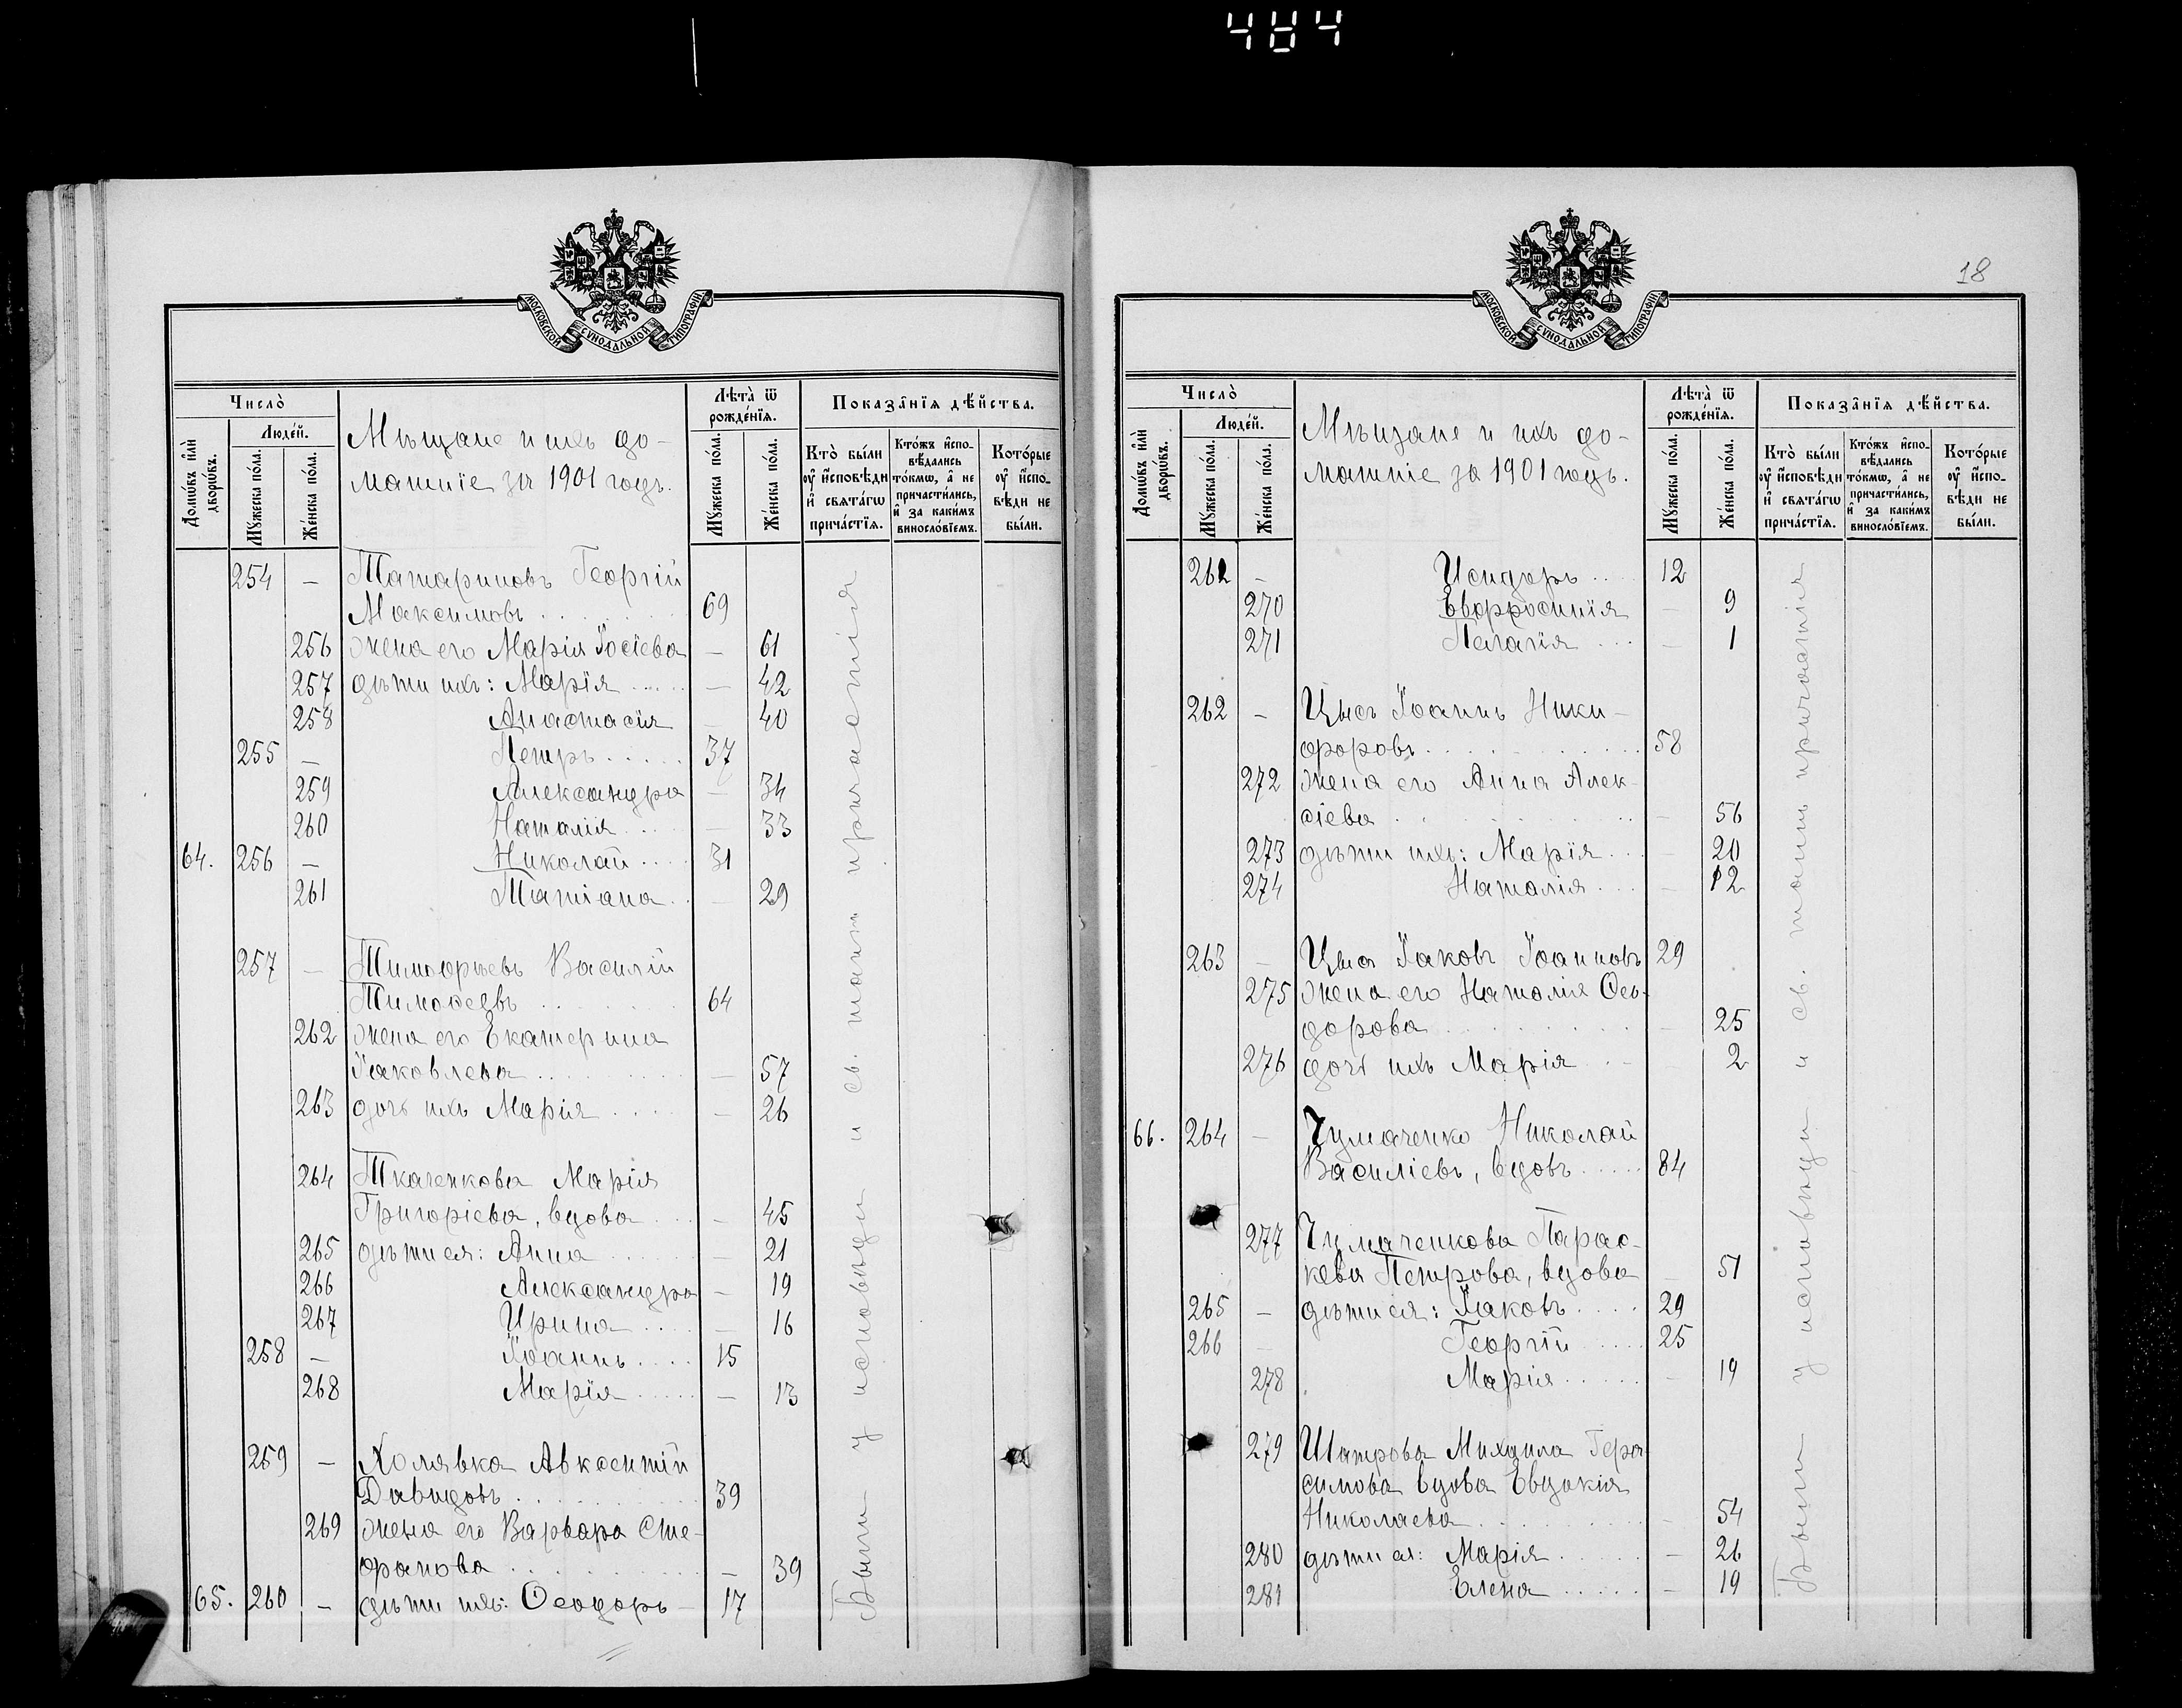 484
МОСКОВСКОЙ СУНОДАЛЬНОЙ ТИПОГРАФІИ.
Число̀
Домѡ́въ и҆лѝ дворѡ́въ.
Люде́й.
Мꙋ́жеска по́ла.
Же́нска по́ла.
Мѣщане и ихъ до-
машніе за 1901 годъ.
Лѣта̀ ѿ рожде́нїѧ.
Мꙋ́жеска по́ла.
Же́нска по́ла.
Показа̑нїѧ дѣ́йства.
Кто̀ бы́ли оу҆ и҆сповѣди и҆ свѧта́гѡ прича́стїѧ.
Кто́жъ и҆спо-вѣдались то́кмѡ, а҆ не причасти́лись, и҆ за каки́мъ винослОвїемъ.
Кото́рые оу҆ и҆спо-вѣди не бы́ли.
254 — Татариновъ Георгій
Максимовъ . . . 69
256 жена его Марія Іосіева — 61
257 дѣти ихъ: Марія . . . — 42
258 Анастасія — 40
255 — Петръ . . . . . 37
259 Александра — 34
260 Наталія . . . — 33
64. 256 — Николай . . . . 31
261 Татіана . . — 29
257 — Тимофѣевъ Василій
Тимоѳеевъ . . . 64
262 жена его Екатерина
Іаковлева . . . — 57
263 дочь ихъ Марія . . . — 26
264 Ткаченкова Марія
Григоріева, вдова . . . — 45
265 дѣти ея: Анна . . . — 21
266 Александра — 19
267 Ирина . . . . — 16
258 — Іоаннъ . . . . 15
268 Марія . . . . . — 13
259 — Холявка Авксентій
Давидовъ . . . 39
269 жена его Варвара Сте-
фанова . . . — 39
65. 260 — дѣти ихъ: Ѳеодоръ — 17
Были у исповѣди и св. таинъ причастія
18
МОСКОВСКОЙ СУНОДАЛЬНОЙ ТИПОГРАФІИ.
Число̀
Домѡ́въ и҆лѝ дворѡ́въ.
Люде́й.
Мꙋ́жеска по́ла.
Же́нска по́ла.
Мѣщане и ихъ до-
машніе за 1901 годъ.
Лѣта̀ ѿ рожде́нїѧ.
Мꙋ́жеска по́ла.
Же́нска по́ла.
Показа̑нїѧ дѣ́йства.
Кто̀ бы́ли оу҆ и҆сповѣди и҆ свѧта́гѡ прича́стїѧ.
Кто́жъ и҆спо-вѣдались то́кмѡ, а҆ не причасти́лись, и҆ за каки́мъ винослОвїемъ.
Кото́рые оу҆ и҆спо-вѣди не бы́ли.
261 — Исидоръ . . 12
270 Евфросинія — 9
271 Пелагія . . . — 1
262 — Цысъ Іоаннъ Ники-
форовъ . . . 58
272 жена его Анна Алек-
сіева . . . — 56
273 дѣти ихъ: Марія . . . — 20
274 Наталія . . . — 12
263 — Цыс Іаковъ Іоанновъ 29
275 жена его Наталія Ѳео-
дорова . . . — 25
276 дочь ихъ Марія . . . — 2
66. 264 — Чумаченко Николай
Василіевъ, вдовъ . . . 84
277 Чумаченкова Парас-
кева Петрова, вдова — 51
265 — дѣти ея: Іаковъ . . . . 29
266 — Георгій . . . . 25
278 Марія . . . . . — 19
279 Шатрова Михаила Гера
симова вдова Евдокія
Николаева . . . — 54
280 дѣти ея: Марія . . . — 26
281 Елена . . . . . — 19
Были у исповѣди и св. таинъ причастія